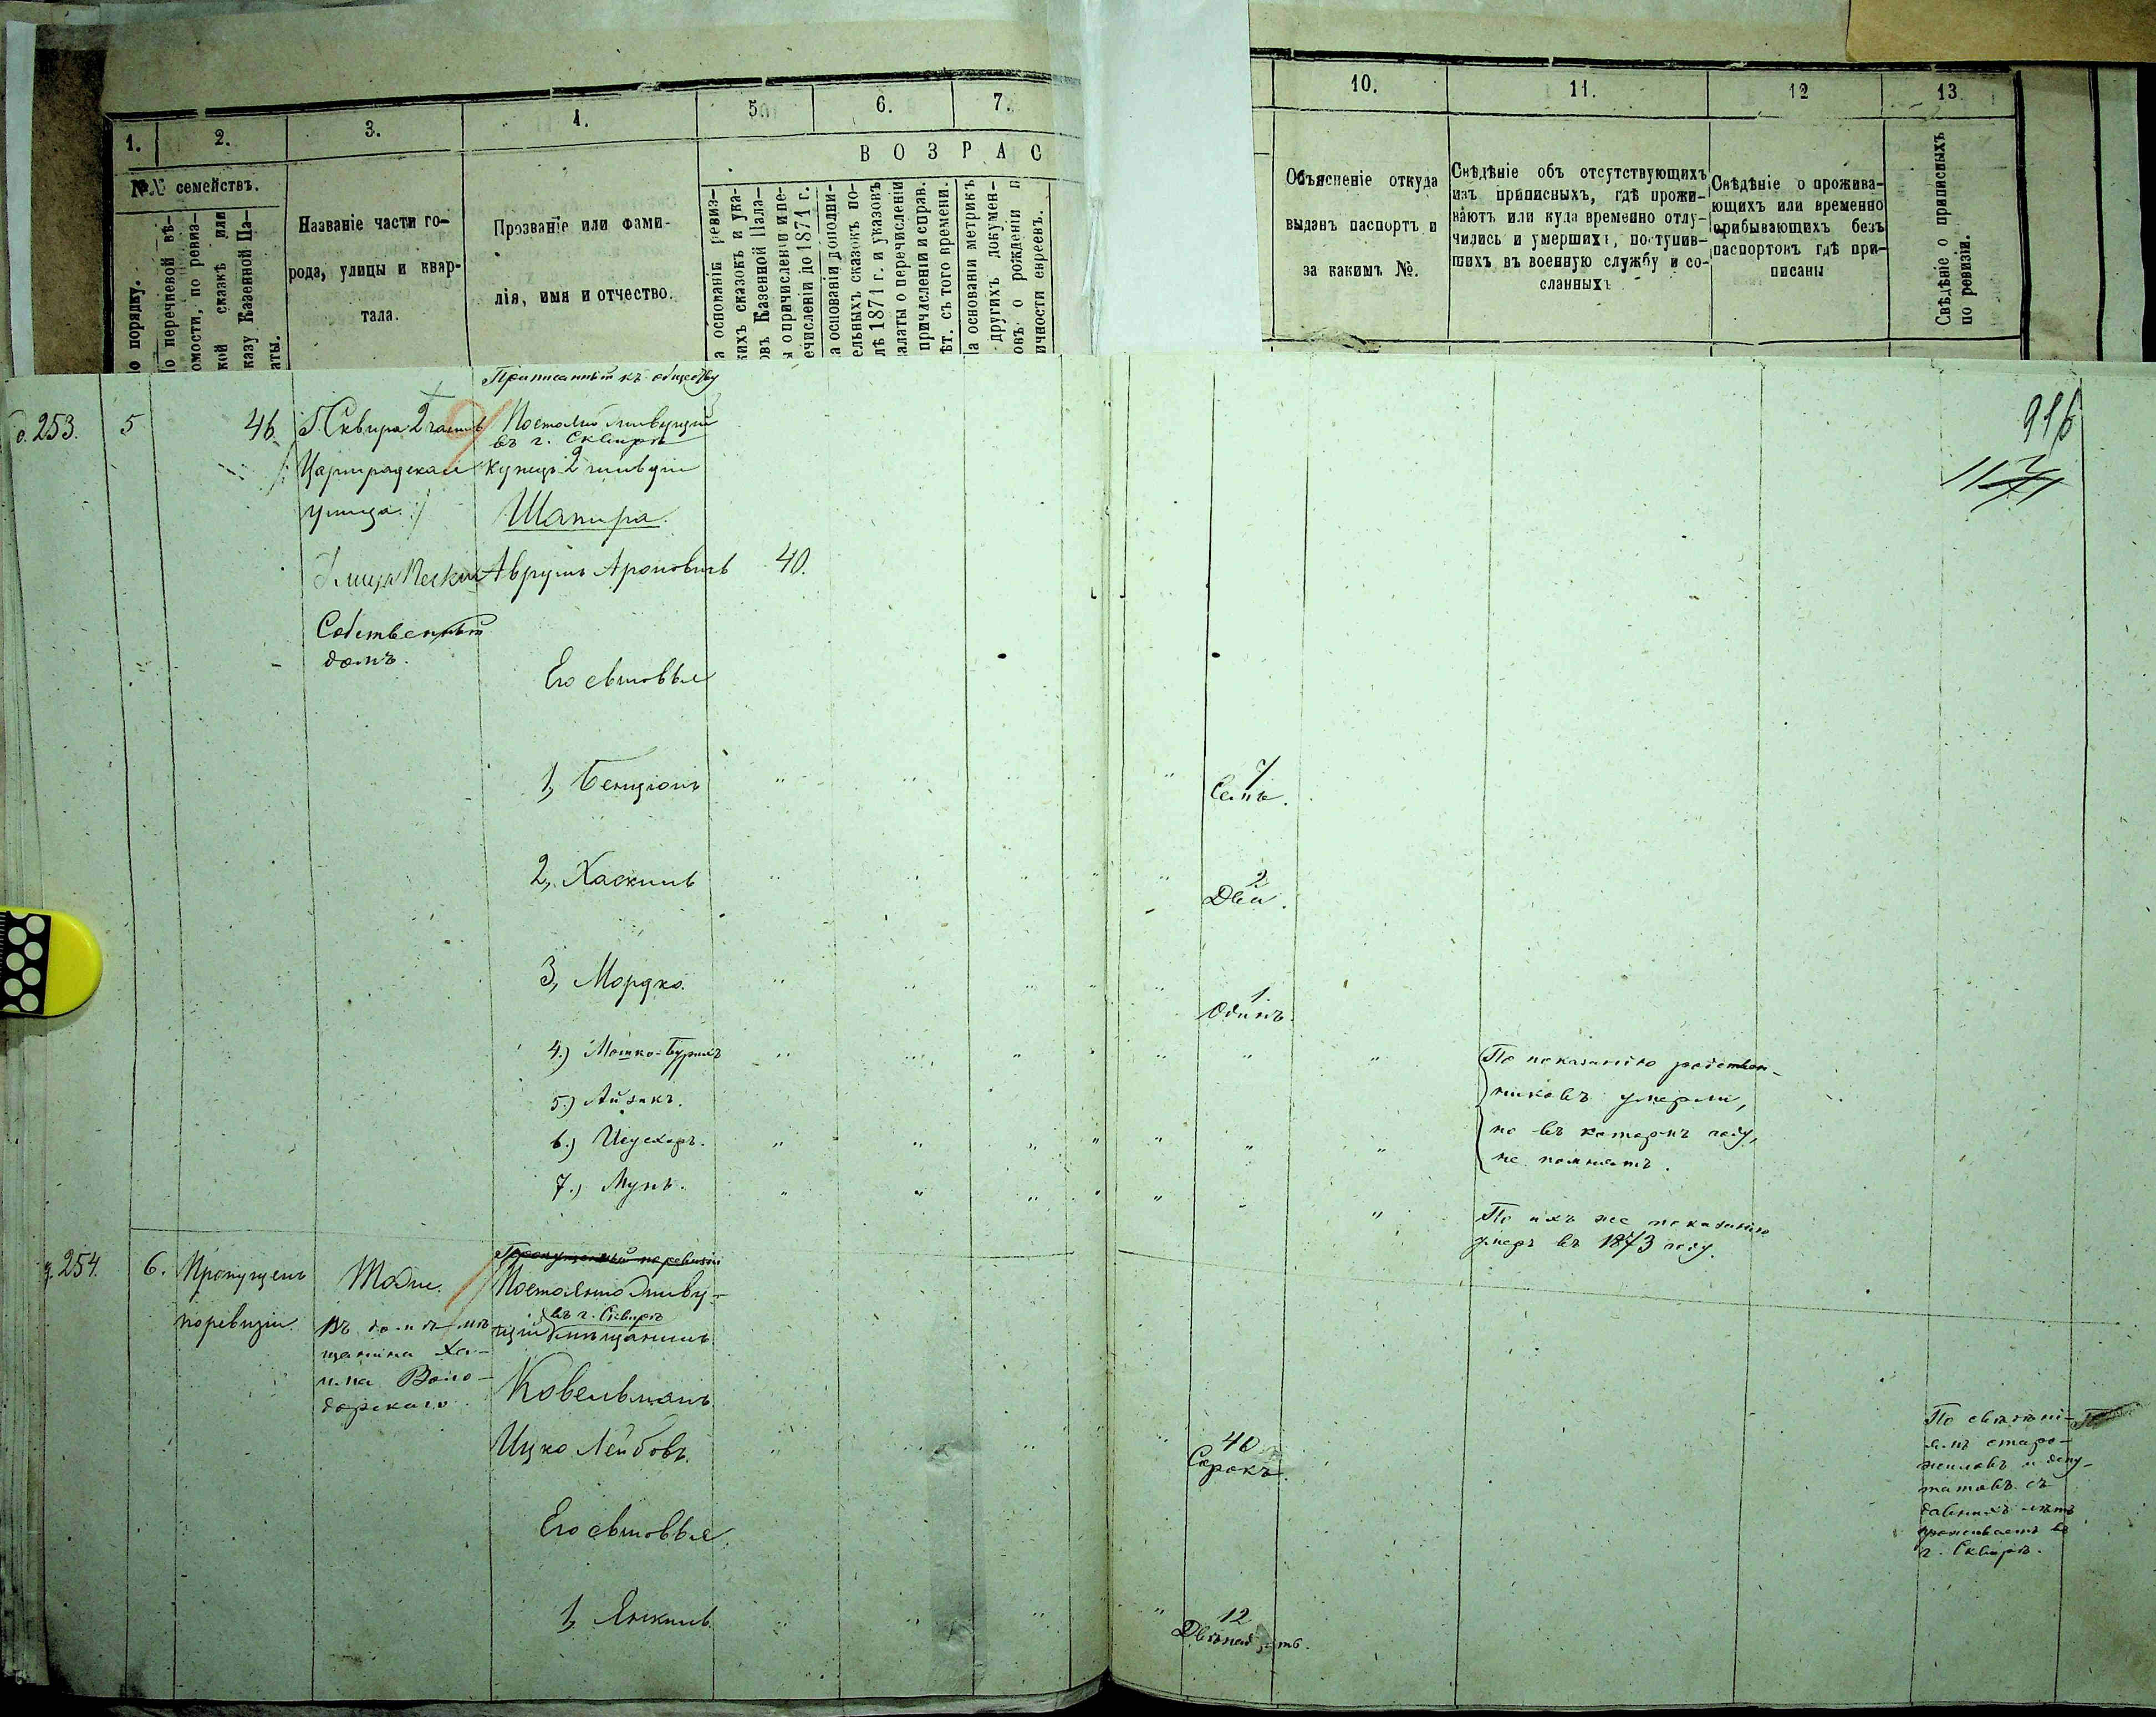 1.
2.
3.
4.
5.
6.
7.
10.
11.
12
13
ВОЗРАС
№№ семействъ.
о порядку.
о перечневой вѣ-
омости, по ревиз-
кой сказкѣ или
казу Казенной Па-
аты.
Названіе части го-
рода, улицы и квар-
тала.
Прозваніе или фами-
лія, имя и отчество.
а основаніи ревиз-
кихъ сказокъ и ука-
овъ Казенной Пала-
ы о причисленіи и пе-
ечисленіи до 1871 г.
а основаніи дополни-
ельныхъ сказокъ по-
лѣ 1871 г. и указовъ
алаты о перечисленіи
причисленіи и справ.
ѣт. съ того времени.
а основаніи метрикъ
другихъ докумен-
овъ о рожденіи п
ичности евреевъ.
Объясненіе откуда
выданъ паспортъ и
за какимъ №.
Свѣдѣніе объ отсутствующихъ
изъ приписныхъ, гдѣ прожи-
ваютъ или куда временно отлу-
чились и умершихъ, поступив-
шихъ въ военную службу и со-
сланныхъ
Свѣдѣніе о прожива-
ющихъ или временно
прибывающихъ безъ
паспортовъ гдѣ при-
писаны
Свѣдѣніе о приписныхъ
по ревизіи.
Приписанный къ обществу
253.
5
46
Г. Сквира 2 часть
Царыградская
улица.
Улица Пески
Собственный
домъ.
Постоянно живущій
въ г. Сквирѣ
купецъ 2 гильдіи
Шапира.
Аврумъ Ароновичъ
40.
916
Его сыновья
1, Бенціонъ
7
Семь.
2, Хаскиль
2
Два.
3, Мордко.
1
Одинъ.
4.) Мошко-Бурихъ
5.) Айзакъ.
6.) Исусхоръ.
7.) Мунь.
По показанію родствен-
никовъ умерли,
но въ котором году,
не помнятъ.
По ихъ же показанію
умеръ въ 1873 году.
254.
6.
Пропущенъ
по ревизіи.
Тоже.
въ домѣ мѣ-
щанина Ха-
има Воло-
дарскаго
Пропущенный по ревизіи
Постоянно живу-
въ г. Сквирѣ
щій мѣщанинъ
Ковельманъ
Ицко Лейбовъ.
40
Сорокъ.
По свѣдѣні-
ямъ старо-
жиловъ и депу-
татовъ съ
давнихъ лѣтъ
проживаетъ въ
г. Сквирѣ.
Его сыновья
1, Янкель
12
Двѣнадцать.